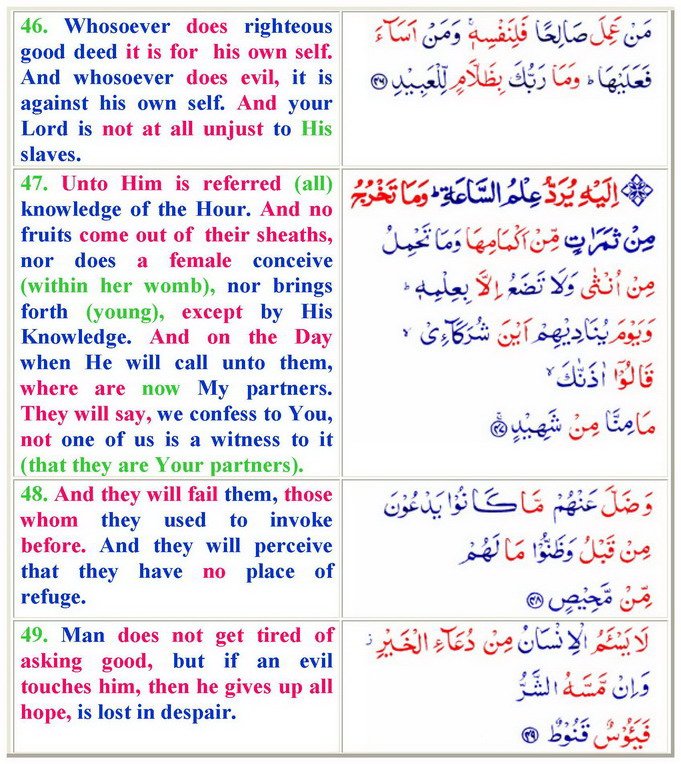 46. Whosoever does righteous
good deed it is for his own self.
And whosoever does evil, it is
against his own self. And your
Lord is not at all unjust to His
slaves.
مَنْ عَمِلَ صَالِحًا فَلِنَفْسِهٖ ۚ وَمَنْ اَسَآءَ
فَعَلَيْهَا ؕ وَمَا رَبُّكَ بِظَلَّامٍ لِّلْعَبِيْدِ ﴿۴۶﴾
47. Unto Him is referred (all)
knowledge of the Hour. And no
fruits come out of their sheaths,
nor does a female conceive
(within her womb), nor brings
forth (young), except by His
Knowledge. And on the Day
when He will call unto them,
where are now My partners.
They will say, we confess to You,
not one of us is a witness to it
(that they are Your partners).
اِلَيْهِ يُرَدُّ عِلْمُ السَّاعَةِ ؕ وَمَا تَخْرُجُ
مِنْ ثَمَرٰتٍ مِّنْ اَكْمَامِهَا وَمَا تَحْمِلُ
مِنْ اُنْثٰى وَلَا تَضَعُ اِلَّا بِعِلْمِهٖ ؕ
وَيَوْمَ يُنَادِيْهِمْ اَيْنَ شُرَكَآءِىْ ۙ
قَالُوْۤا اٰذَنّٰكَ ۙ
مَا مِنَّا مِنْ شَهِيْدٍ ۚ ﴿۴۷﴾
48. And they will fail them, those
whom they used to invoke
before. And they will perceive
that they have no place of
refuge.
وَضَلَّ عَنْهُمْ مَّا كَانُوْا يَدْعُوْنَ
مِنْ قَبْلُ وَظَنُّوْا مَا لَهُمْ
مِّنْ مَّحِيْصٍ ﴿۴۸﴾
49. Man does not get tired of
asking good, but if an evil
touches him, then he gives up all
hope, is lost in despair.
لَا يَسْـَٔمُ الْاِنْسَانُ مِنْ دُعَآءِ الْخَيْرِ ز
وَاِنْ مَّسَّهُ الشَّرُّ
فَيَـُٔوْسٌ قَنُوْطٌ ﴿۴۹﴾